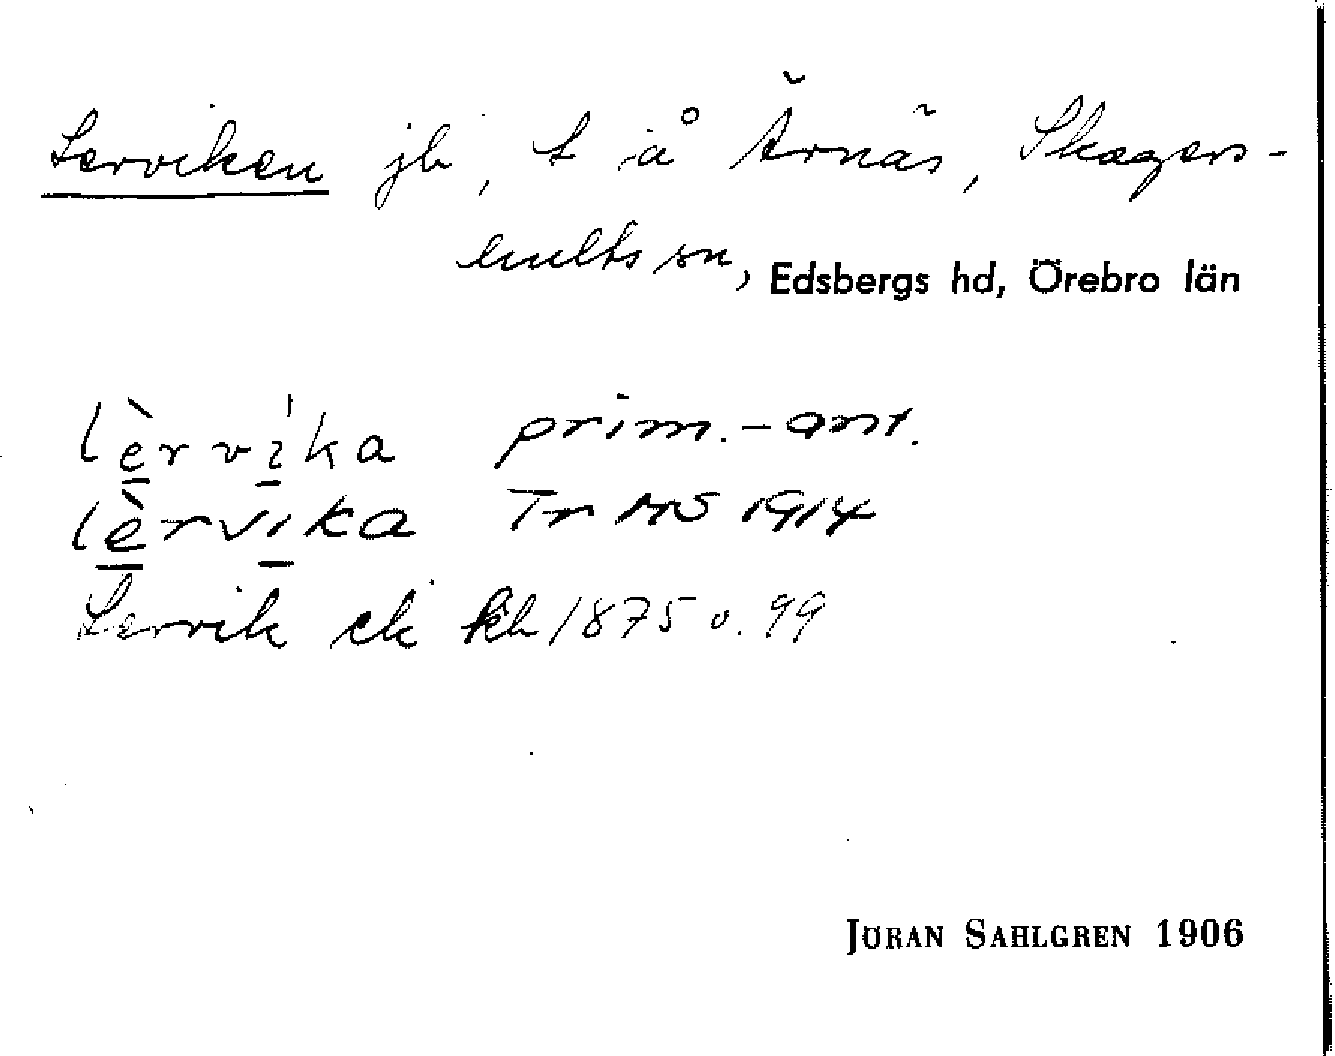 Lerviken jb, t å Årnäs, Skagers-
hults sn, Edsbergs hd, Örebro län
lèrvi̍ka prim.-ant.
lèrvika Tr MS 1914
Lervik ek kb 1875 o. 99
JÖRAN SAHLGREN 1906